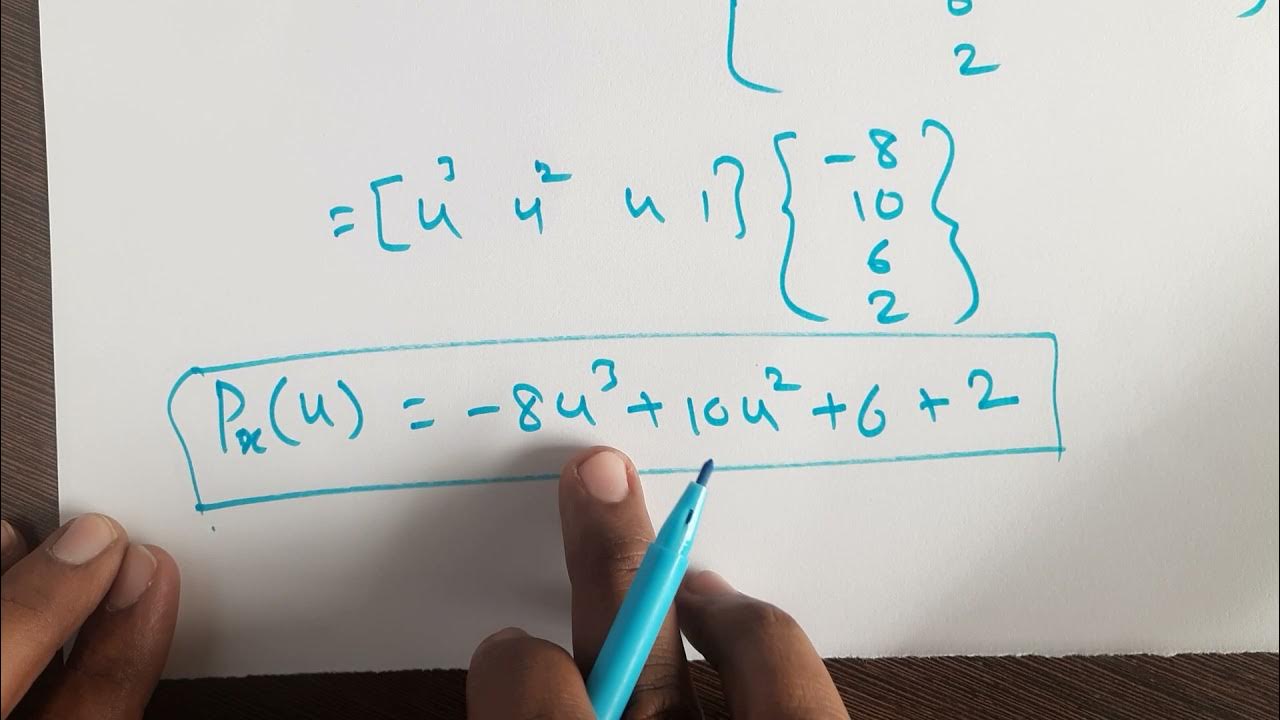 2
= [u³ u² u 1] { -8
10
6
2 }
Px(u) = -8u³ + 10u² + 6 + 2